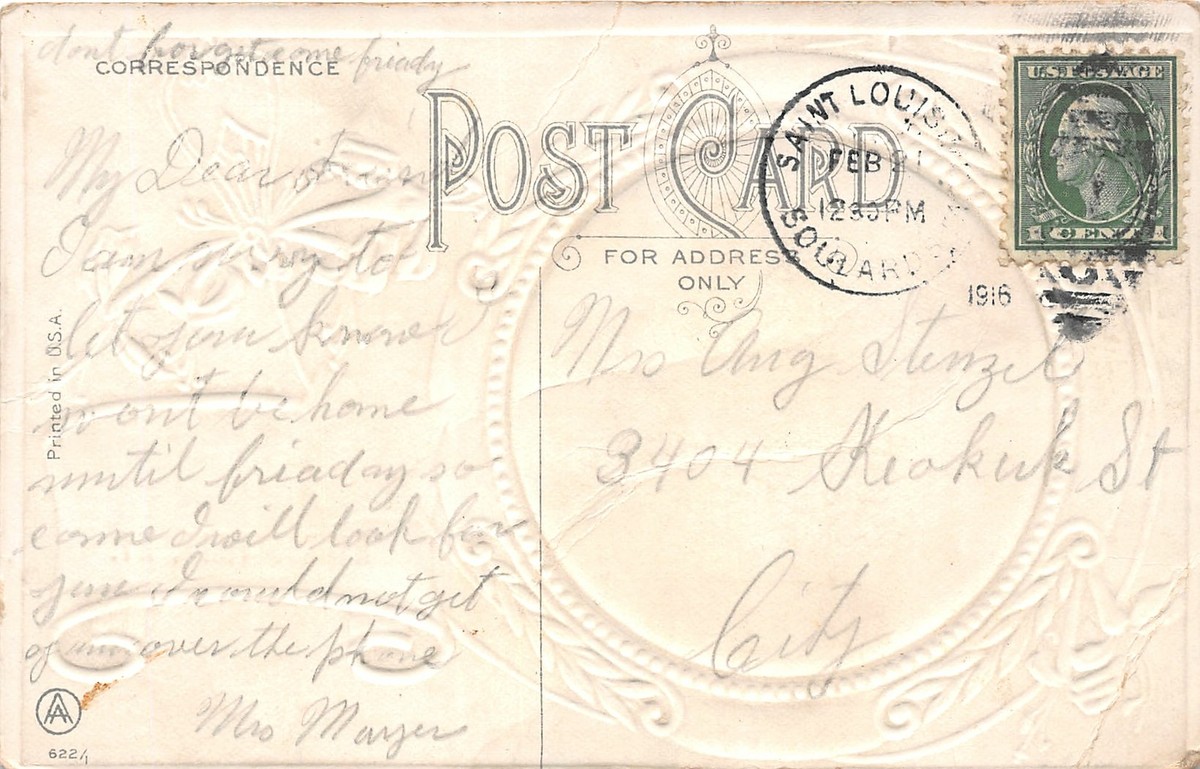 dont forget come friady
CORRESPONDENCE
POST CARD
FOR ADDRESS
ONLY
SAINT LOUIS
FEB 21
1230PM
SOULARD
1916
U.S. POSTAGE
1 CENT 1
My Dear friend
I am sorry to
let you know
wont be home
until friaday so
come I will look for
you I could not get
you over the phone
Mrs Mayer
Mrs Aug Stenzel
3404 Keokuk St
City
Printed in U.S.A.
AA
622/1